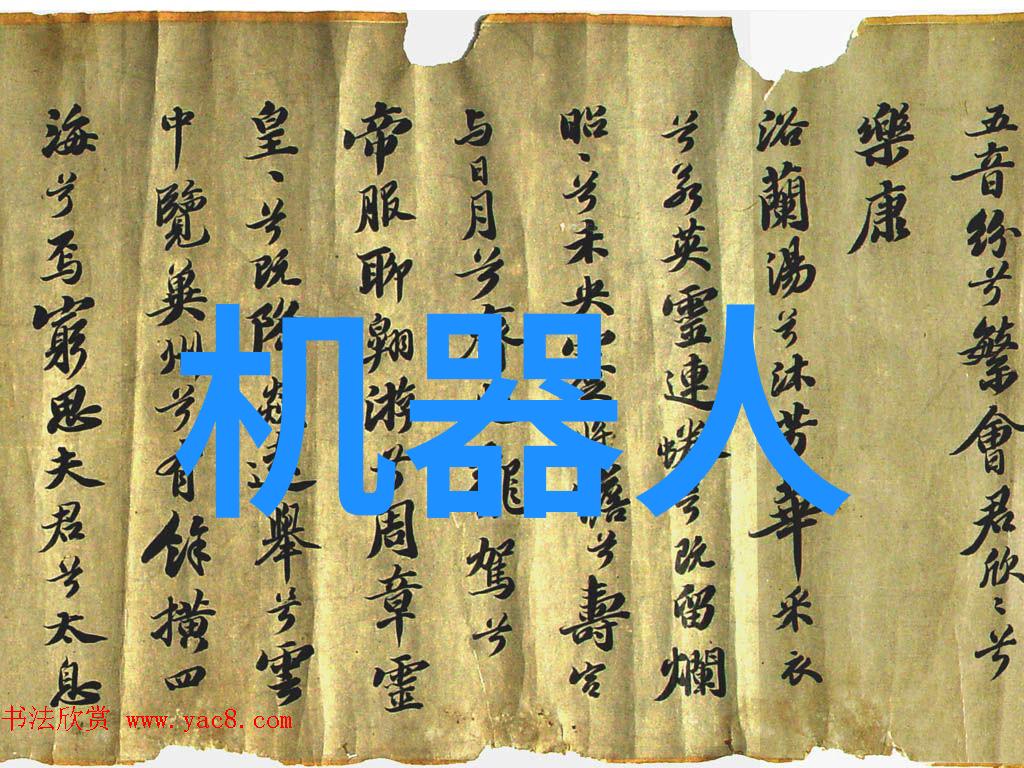 五音紛兮繁會君欣〻兮
樂康
浴蘭湯兮沐芳華采衣
兮若英靈連蜷兮既留爛
昭〻兮未央憺兮壽宮
与日月兮齊龍駕兮
帝服聊翱游兮周章靈
皇〻兮既降猋遠舉兮雲
中覽兾州兮有餘橫四
海兮焉窮思夫君兮太息
机器人
书法欣赏 www.yac8.com